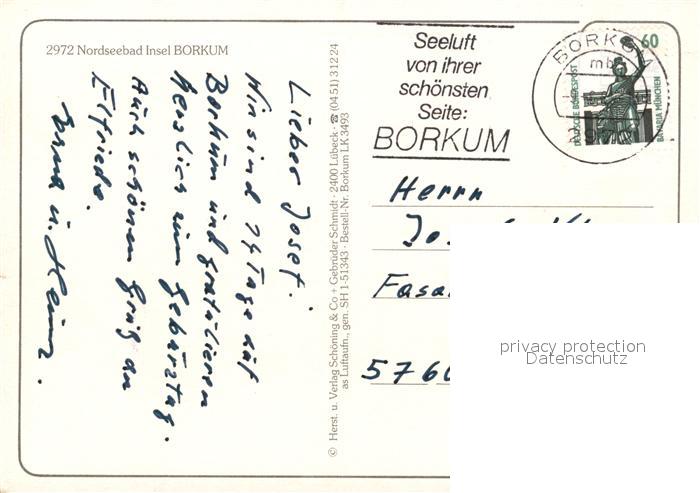 2972 Nordseebad Insel BORKUM
Lieber Josef.
Wir sind 14 Tage auf
Borkum und gratulieren
herzlich zum Geburtstag.
Auch schönen Gruß an
Elfriede.
Erna u. Heinz.
© Herst. u. Verlag Schöning & Co + Gebrüder Schmidt · 2400 Lübeck · ☎ (04 51) 3 12 24
as Luftaufn., gen. SH 1-51343 · Bestell-Nr. Borkum LK 3493
Seeluft
von ihrer
schönsten
Seite:
BORKUM
BORKUM
mb
60
DEUTSCHE BUNDESPOST
BAVARIA MÜNCHEN
Herrn
Jo
Fasa
5760
privacy protection
Datenschutz